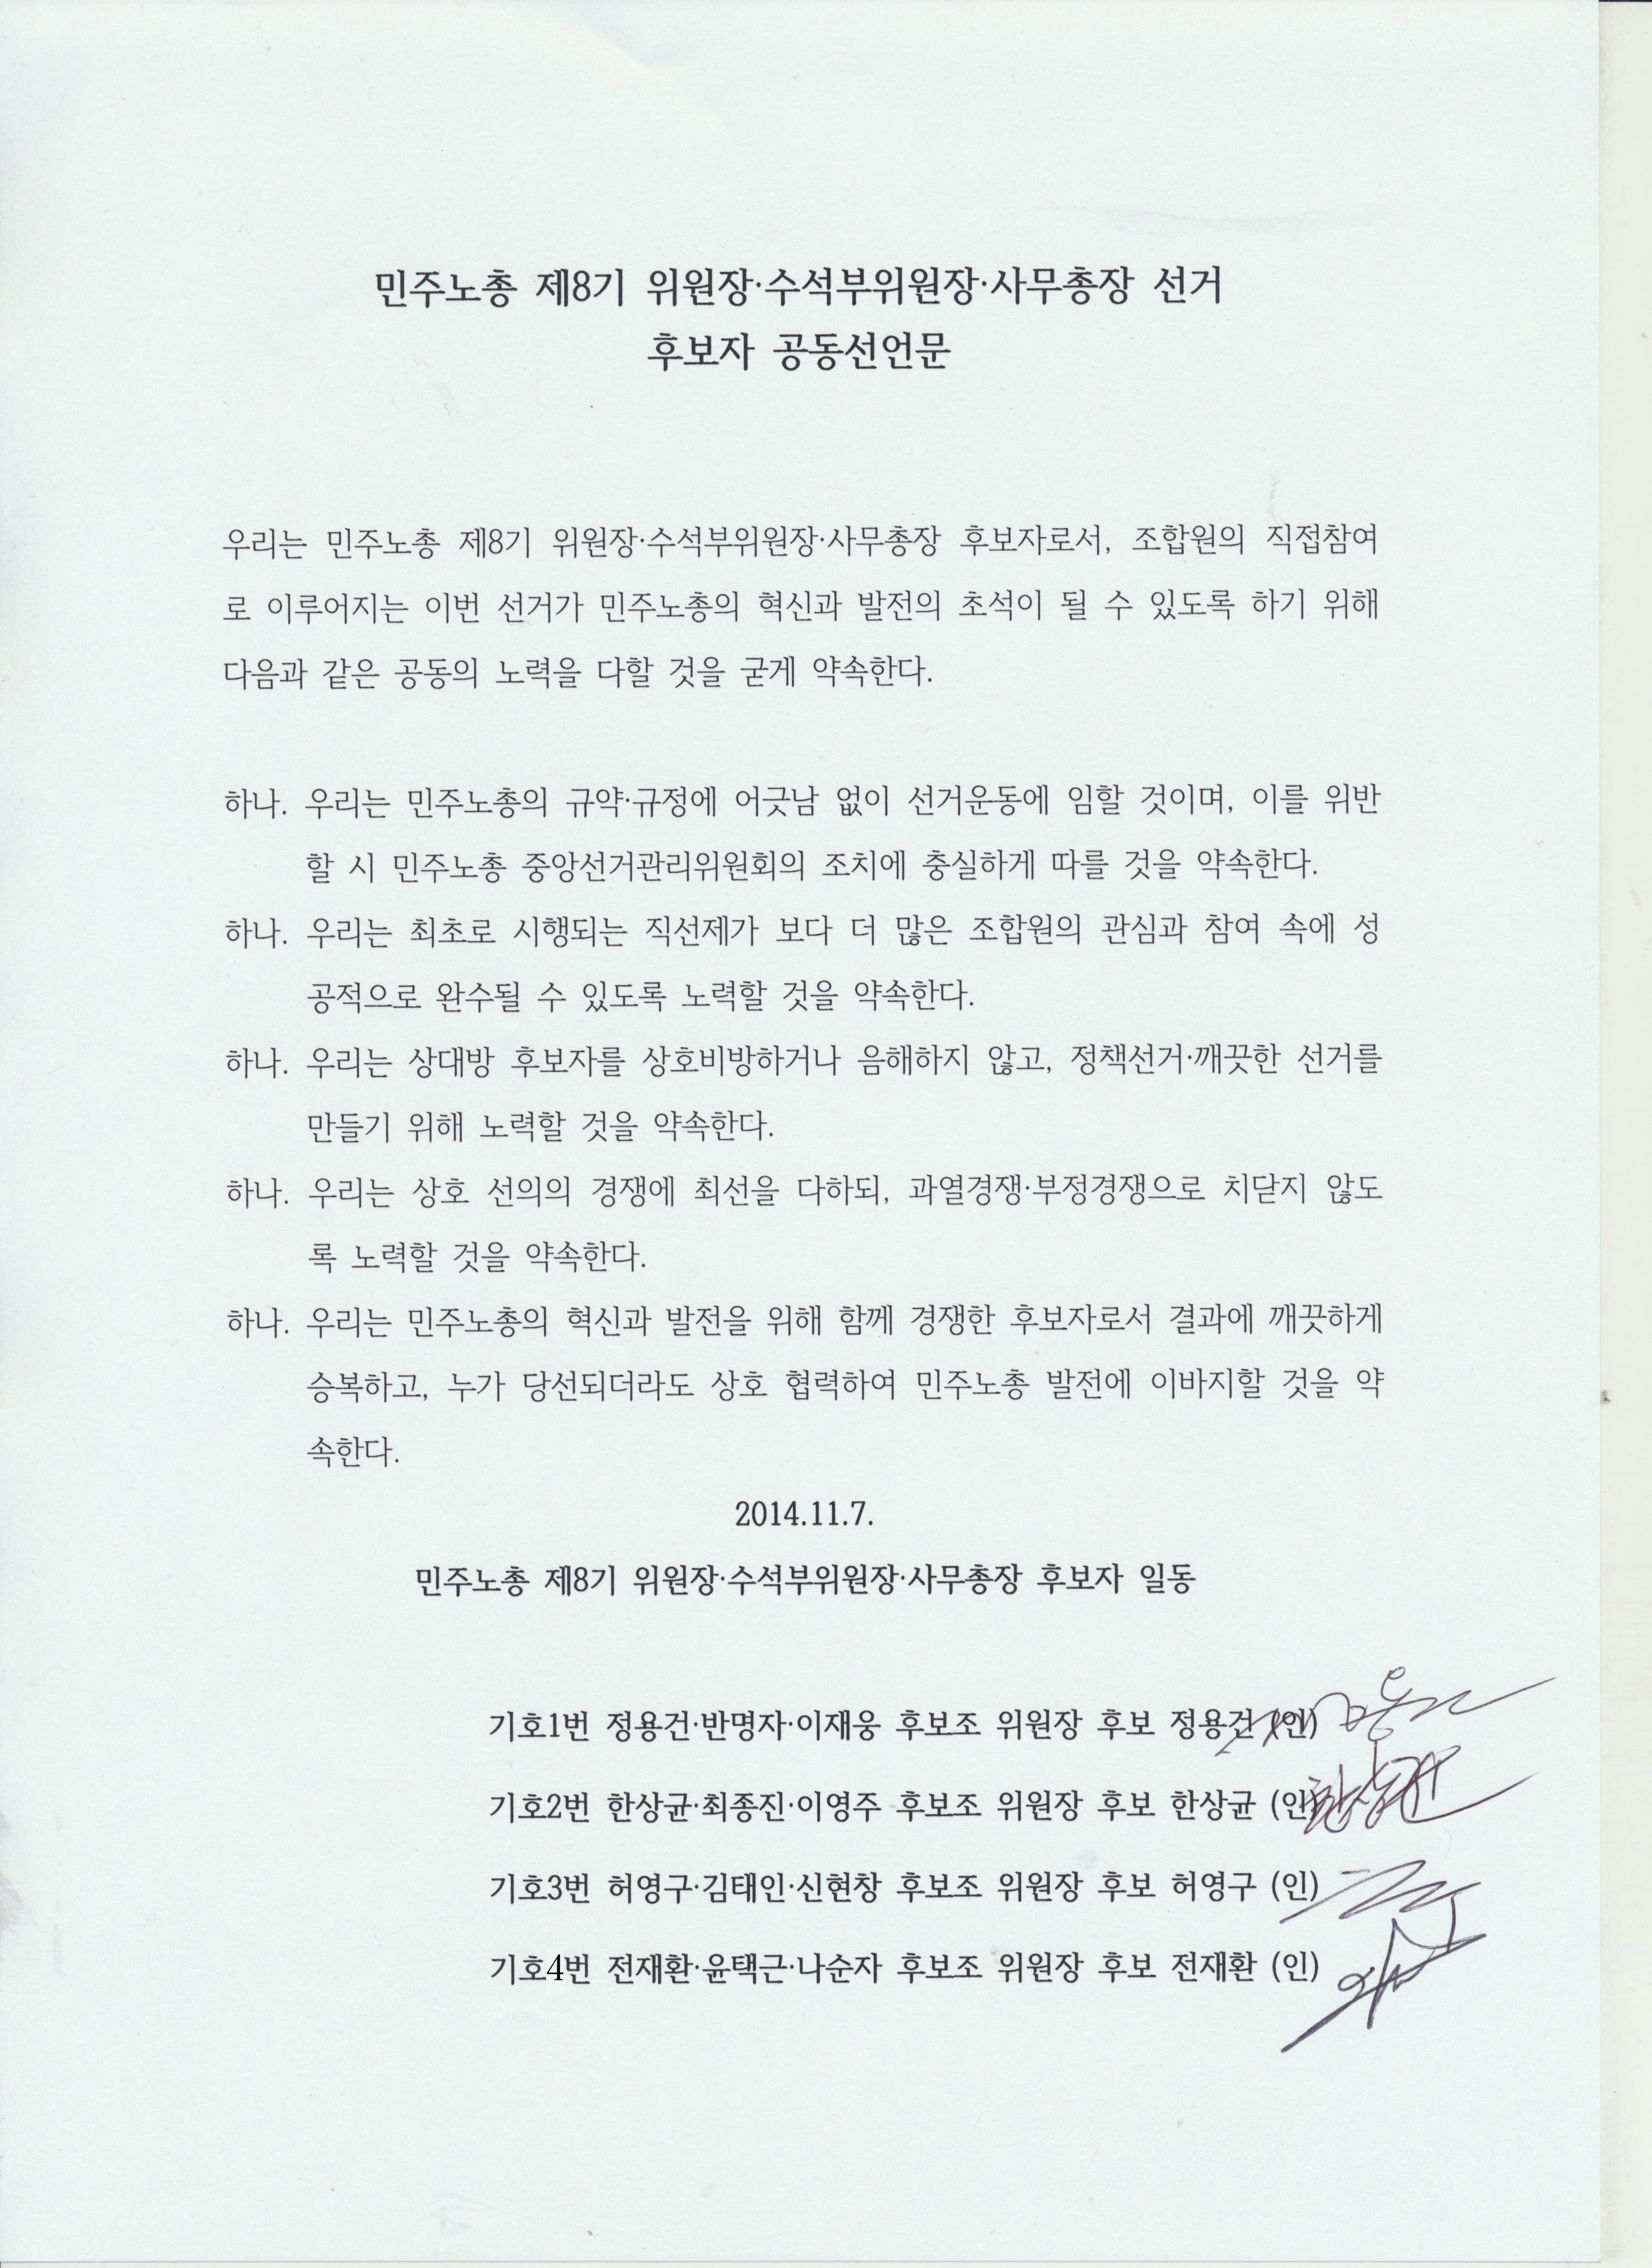 민주노총 제8기 위원장·수석부위원장·사무총장 선거
후보자 공동선언문
우리는 민주노총 제8기 위원장·수석부위원장·사무총장 후보자로서, 조합원의 직접참여
로 이루어지는 이번 선거가 민주노총의 혁신과 발전의 초석이 될 수 있도록 하기 위해
다음과 같은 공동의 노력을 다할 것을 굳게 약속한다.
하나. 우리는 민주노총의 규약·규정에 어긋남 없이 선거운동에 임할 것이며, 이를 위반
할 시 민주노총 중앙선거관리위원회의 조치에 충실하게 따를 것을 약속한다.
하나. 우리는 최초로 시행되는 직선제가 보다 더 많은 조합원의 관심과 참여 속에 성
공적으로 완수될 수 있도록 노력할 것을 약속한다.
하나. 우리는 상대방 후보자를 상호비방하거나 음해하지 않고, 정책선거·깨끗한 선거를
만들기 위해 노력할 것을 약속한다.
하나. 우리는 상호 선의의 경쟁에 최선을 다하되, 과열경쟁·부정경쟁으로 치닫지 않도
록 노력할 것을 약속한다.
하나. 우리는 민주노총의 혁신과 발전을 위해 함께 경쟁한 후보자로서 결과에 깨끗하게
승복하고, 누가 당선되더라도 상호 협력하여 민주노총 발전에 이바지할 것을 약
속한다.
2014.11.7.
민주노총 제8기 위원장·수석부위원장·사무총장 후보자 일동
기호1번 정용건·반명자·이재웅 후보조 위원장 후보 정용건 (인)
기호2번 한상균·최종진·이영주 후보조 위원장 후보 한상균 (인) 한상균
기호3번 허영구·김태인·신현창 후보조 위원장 후보 허영구 (인)
기호4번 전재환·윤택근·나순자 후보조 위원장 후보 전재환 (인)